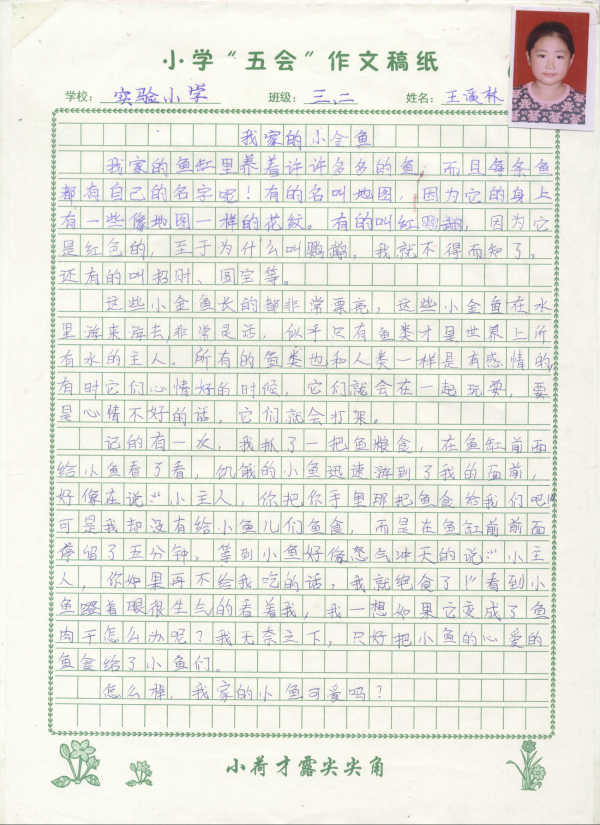 小学“五会”作文稿纸
学校：实验小学 班级：三、二 姓名：王溪林
我家的小金鱼
我家的鱼缸里养着许许多多的鱼，而且每条鱼
都有自己的名字呢！有的名叫地图，因为它的身上
有一些像地图一样的花纹。有的叫红鹦鹉，因为它
是红色的，至于为什么叫鹦鹉，我就不得而知了。
还有的叫招财、圆宝等。
这些小金鱼长的都非常票亮，这些小金鱼在水
里游来游去，非常灵活，似乎只有鱼类才是世界上所
有水的主人。所有的鱼类也和人类一样是有感情的
有时它们心情好的时候，它们就会在一起玩耍，要
是心情不好的话，它们就会打架。
记的有一次，我抓了一把鱼粮食，在鱼缸前面
给小鱼看了看，饥饿的小鱼迅速游到了我的面前，
好像在说：“小主人，你把你手里那把鱼食给我们吧！”
可是我却没有给小鱼儿们鱼食，而是在鱼缸前前面
停留了五分钟，等到小鱼好像怒气冲天的说：“小主
人，你如果再不给我吃的话，我就绝食了！”看到小
鱼瞪着眼很生气的看着我，我一想如果它变成了鱼
肉干怎么办呢？我无奈之下，只好把小鱼的心爱的
鱼食给了小鱼们。
怎么样，我家的小鱼可爱吗？
小荷才露尖尖角